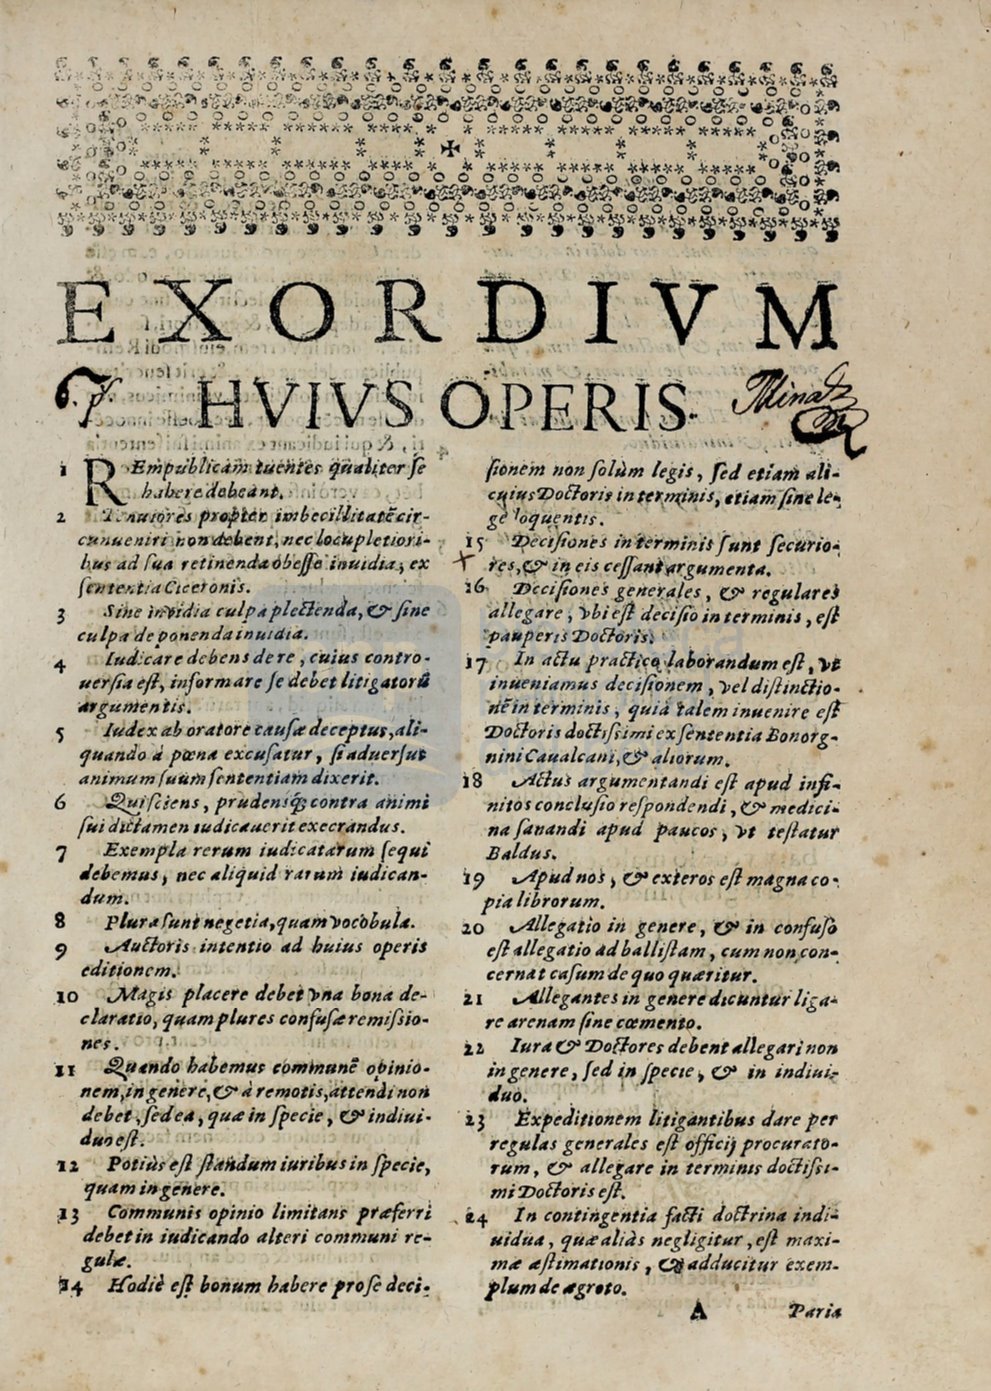 EXORDIVM
HVIVS OPERIS
1 REmpublicam tuentes qualiter se
habere debeant.
2 Tenuiores propter imbecillitatẽ cir-
cunueniri non debent, nec locupletiori-
bus ad sua retinenda obesse inuidia, ex
sententia Ciceronis.
3 Sine inuidia culpa plectenda, & sine
culpa deponenda inuidia.
4 Iudicare debens de re, cuius contro-
uersia est, informare se debet litigatorũ
argumentis.
5 Iudex ab oratore causæ deceptus, ali-
quando à pœna excusatur, si aduersus
animum suum sententiam dixerit.
6 Qui sciens, prudensq́; contra animi
sui dictamen iudicauerit execrandus.
7 Exempla rerum iudicatarum sequi
debemus, nec aliquid rarum iudican-
dum.
8 Plura sunt negetia, quam vocobula.
9 Auctoris intentio ad huius operis
editionem.
10 Magis placere debet vna bona de-
claratio, quam plures confusæ remissio-
nes.
11 Quando habemus communẽ opinio-
nem, in genere, & à remotis, attendi non
debet, sed ea, quæ in specie, & indiui-
duo est.
12 Potiùs est standum iuribus in specie,
quam in genere.
13 Communis opinio limitans præferri
debet in iudicando alteri communi re-
gulæ.
14 Hodiè est bonum habere pro se deci-
sionem non solùm legis, sed etiam ali-
cuius Doctoris in terminis, etiam sine le-
ge loquentis.
15 Decisiones in terminis sunt securio-
res, & in eis cessant argumenta.
16 Decisiones generales, & regulares
allegare, vbi est decisio in terminis, est
pauperis Doctoris.
17 In actu practico laborandum est, vt
inueniamus decisionem, vel distinctio-
nẽ in terminis, quia talem inuenire est
Doctoris doctissimi ex sententia Bonorg-
nini Caualcani, & aliorum.
18 Actus argumentandi est apud infi-
nitos conclusio respondendi, & medici-
na sanandi apud paucos, vt testatur
Baldus.
19 Apud nos, & exteros est magna co-
pia librorum.
20 Allegatio in genere, & in confuso
est allegatio ad ballistam, cum non con-
cernat casum de quo quæritur.
21 Allegantes in genere dicuntur liga-
re arenam sine cœmento.
22 Iura & Doctores debent allegari non
in genere, sed in specie, & in indiui-
duo.
23 Expeditionem litigantibus dare per
regulas generales est officij procurato-
rum, & allegare in terminis doctissi-
mi Doctoris est.
24 In contingentia facti doctrina indi-
uidua, quæ aliàs negligitur, est maxi-
mæ æstimationis, & adducitur exem-
plum de ægroto.
A Paria